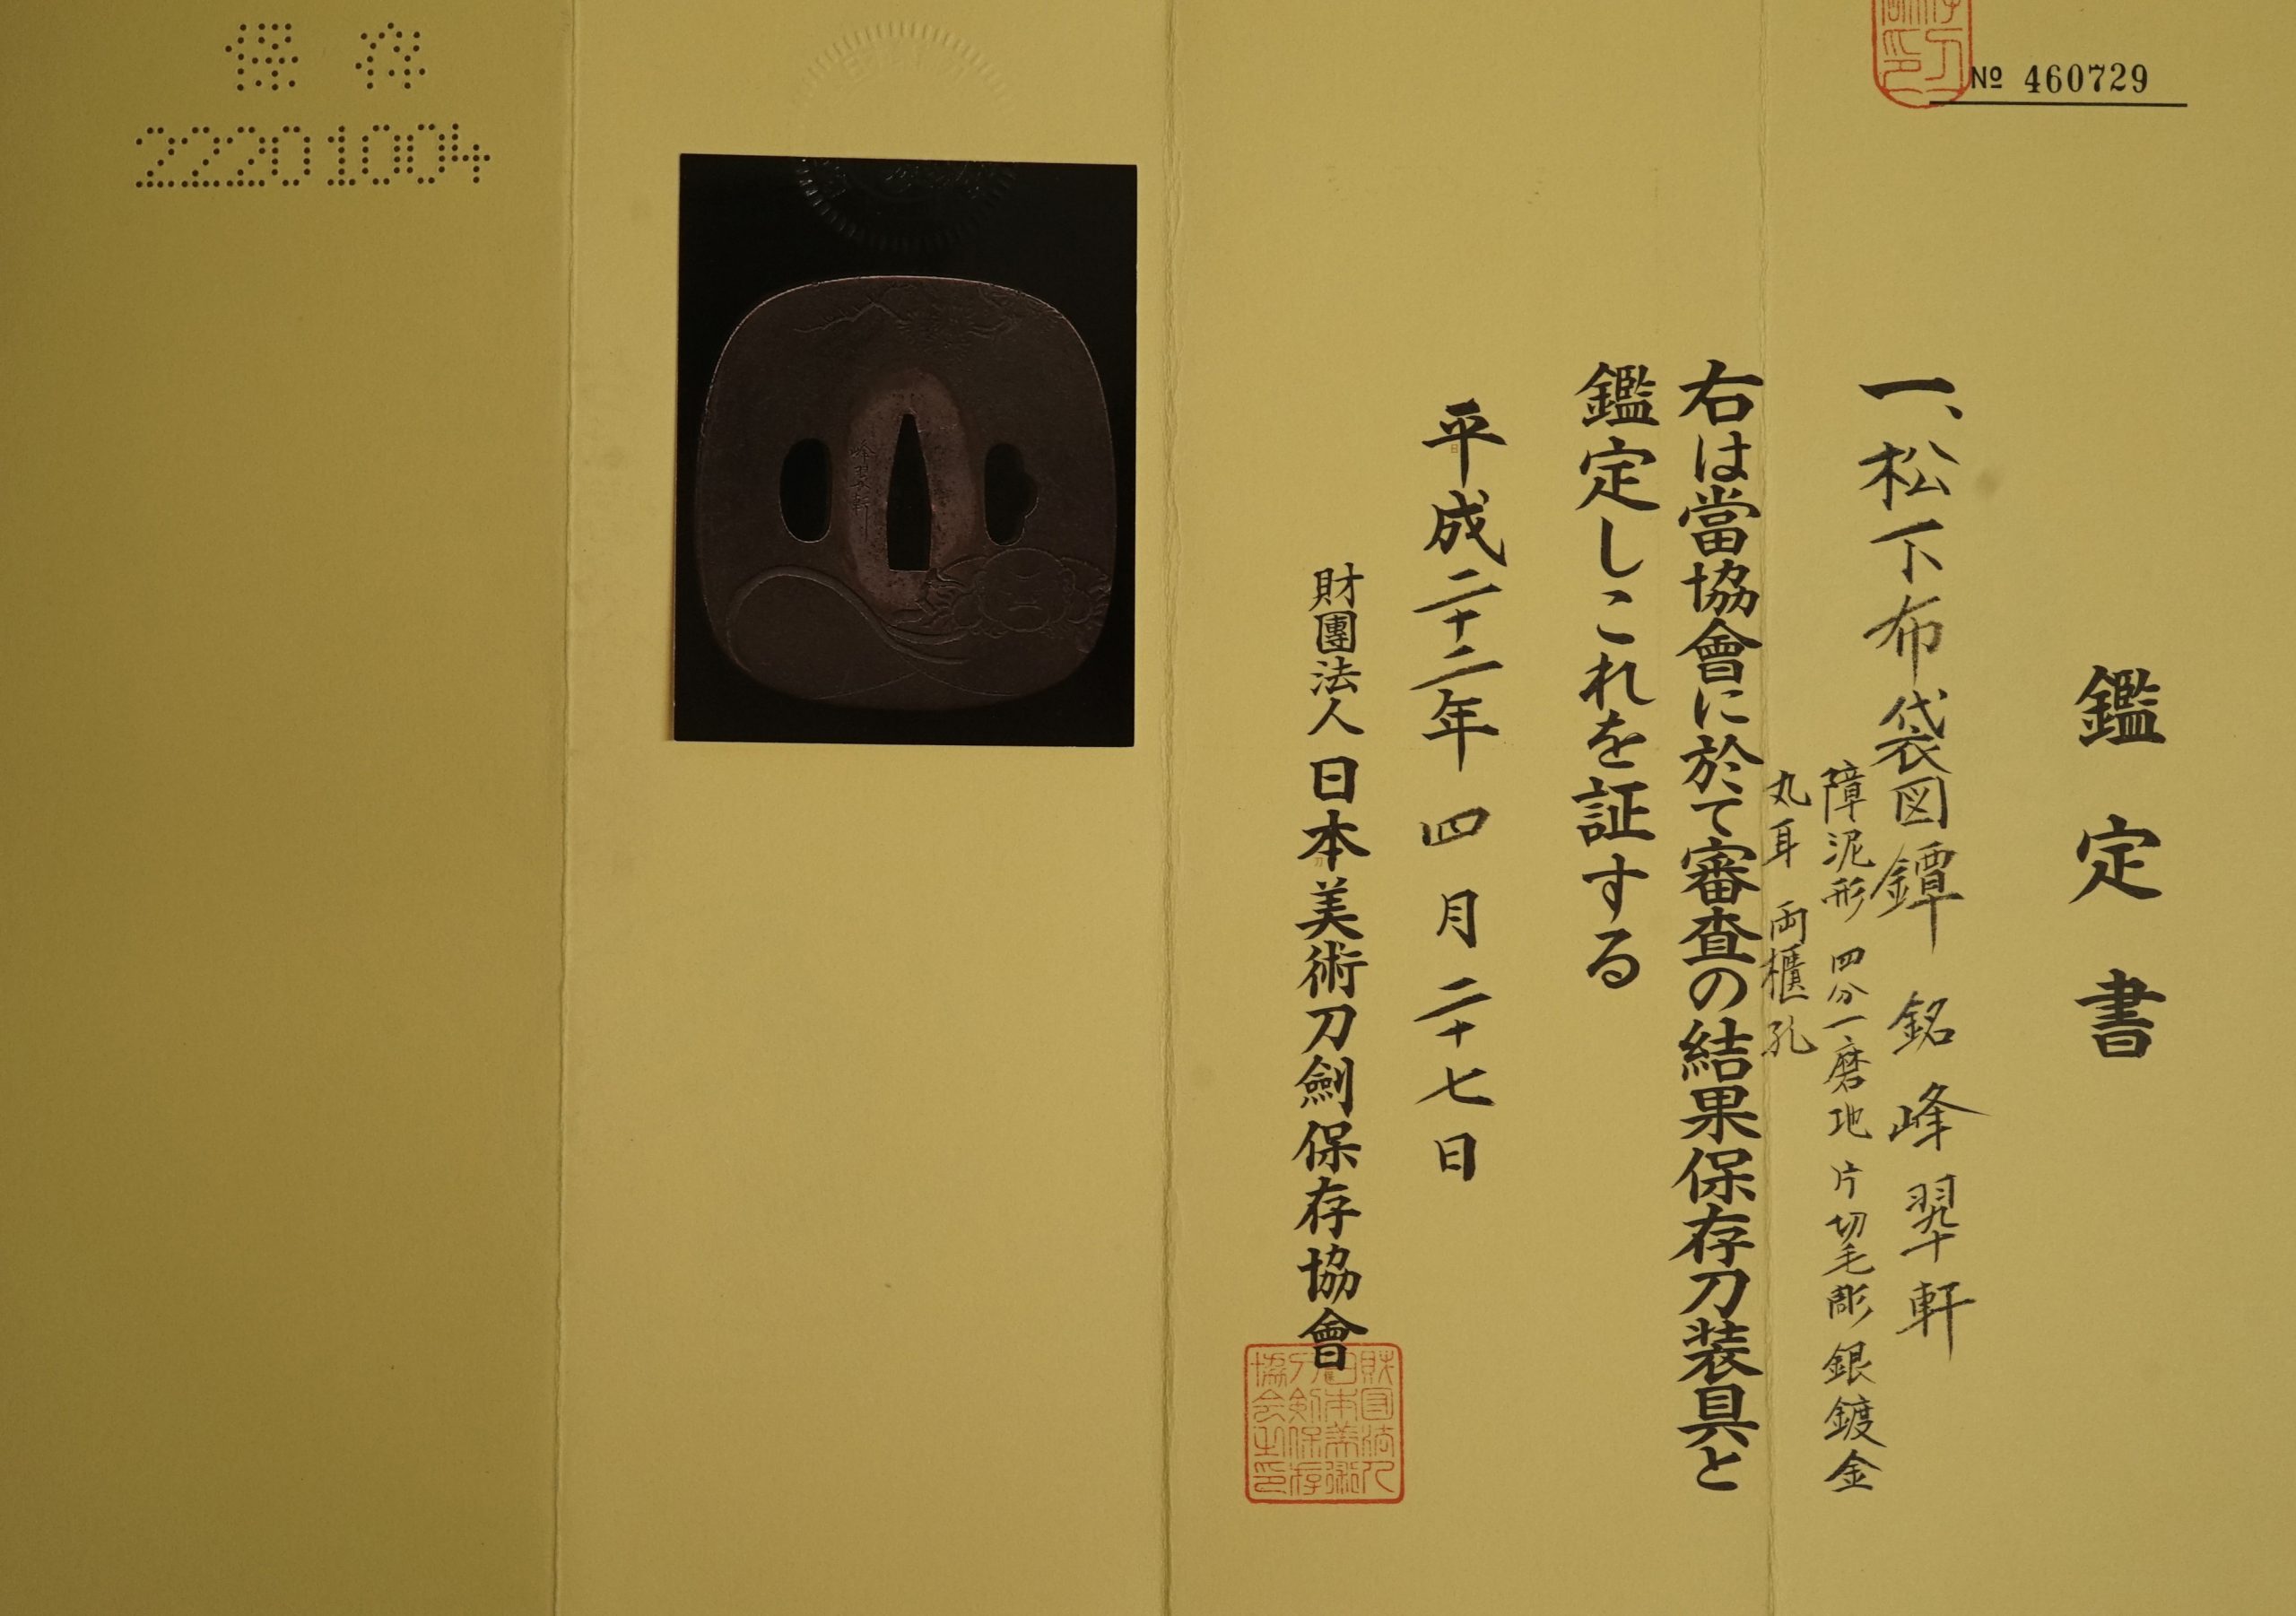 No 460729
鑑定書
一、松下布袋図鐔 銘 峰翠軒
障泥形 四分一磨地 片切毛彫 銀鍍金
丸耳 両櫃孔
右は當協會に於て審査の結果保存刀装具と
鑑定しこれを証する
平成二十二年四月二十七日
財團法人 日本美術刀劍保存協會
財団法人日本美術刀剣保存協会之印
峰翠軒
保存
22201004